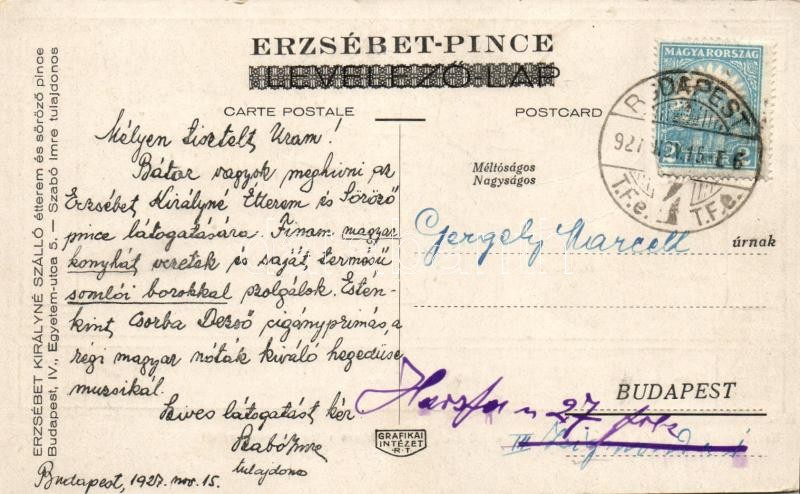 ERZSÉBET-PINCE
LEVELEZŐ-LAP
CARTE POSTALE
POSTCARD
MAGYARORSZÁG
BUDAPEST
T.F.e. T.F.e.
ERZSÉBET KIRÁLYNÉ SZÁLLÓ étterem és söröző pince
Budapest, IV., Egyetem-utca 5. — Szabó Imre tulajdonos
Mélyen tisztelt Uram!
Bátor vagyok meghivni az
Erzsébet Királyné Étterem és Söröző
pince látogatására. Finom magyar
konyhát vezetek és saját termésű
somlói borokkal szolgálok. Estén-
kint Csorba Dezső cigányprimás, a
régi magyar nóták kiváló hegedűse
muzsikál.
Szives látogatást kér
Szabó Imre
tulajdonos
Budapest, 1927. nov. 15.
Méltóságos
Nagyságos
Gergely Marcell
úrnak
BUDAPEST
27
III
GRAFIKAI
INTÉZET
R.T.